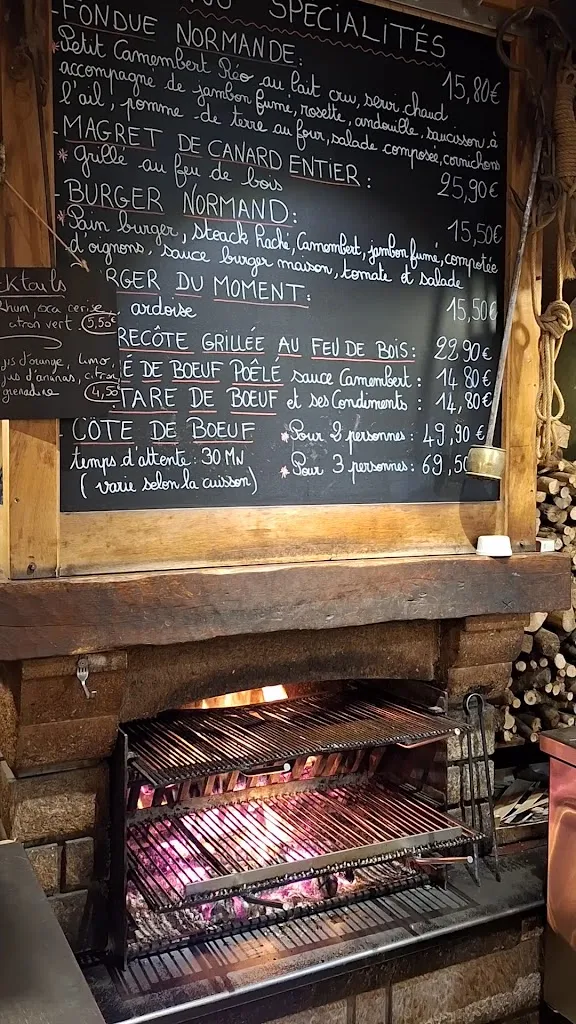 SPÉCIALITÉS
FONDUE NORMANDE: 15,80€
* Petit Camembert Réo au lait cru, servi chaud
accompagné de jambon fumé, rosette, andouille, saucisson à
l'ail, pomme de terre au four, salade composée, cornichons
MAGRET DE CANARD ENTIER: 25,90€
* grillé au feu de bois
BURGER NORMAND: 15,50€
* Pain burger, steack haché, Camembert, jambon fumé, compotée
d'oignons, sauce burger maison, tomate et salade
RGER DU MOMENT: 15,50€
ardoise
RECÔTE GRILLÉE AU FEU DE BOIS: 22,90€
É DE BOEUF POÊLÉ sauce Camembert: 14,80€
TARE DE BOEUF et ses Condiments: 14,80€
CÔTE DE BOEUF * Pour 2 personnes: 49,90€
temps d'attente: 30 MN * Pour 3 personnes: 69,50
(varie selon la cuisson)
cktails
Rhum coca cerise
citron vert 5,50€
jus d'orange, limo
jus d'ananas, citron
grenadine 4,50